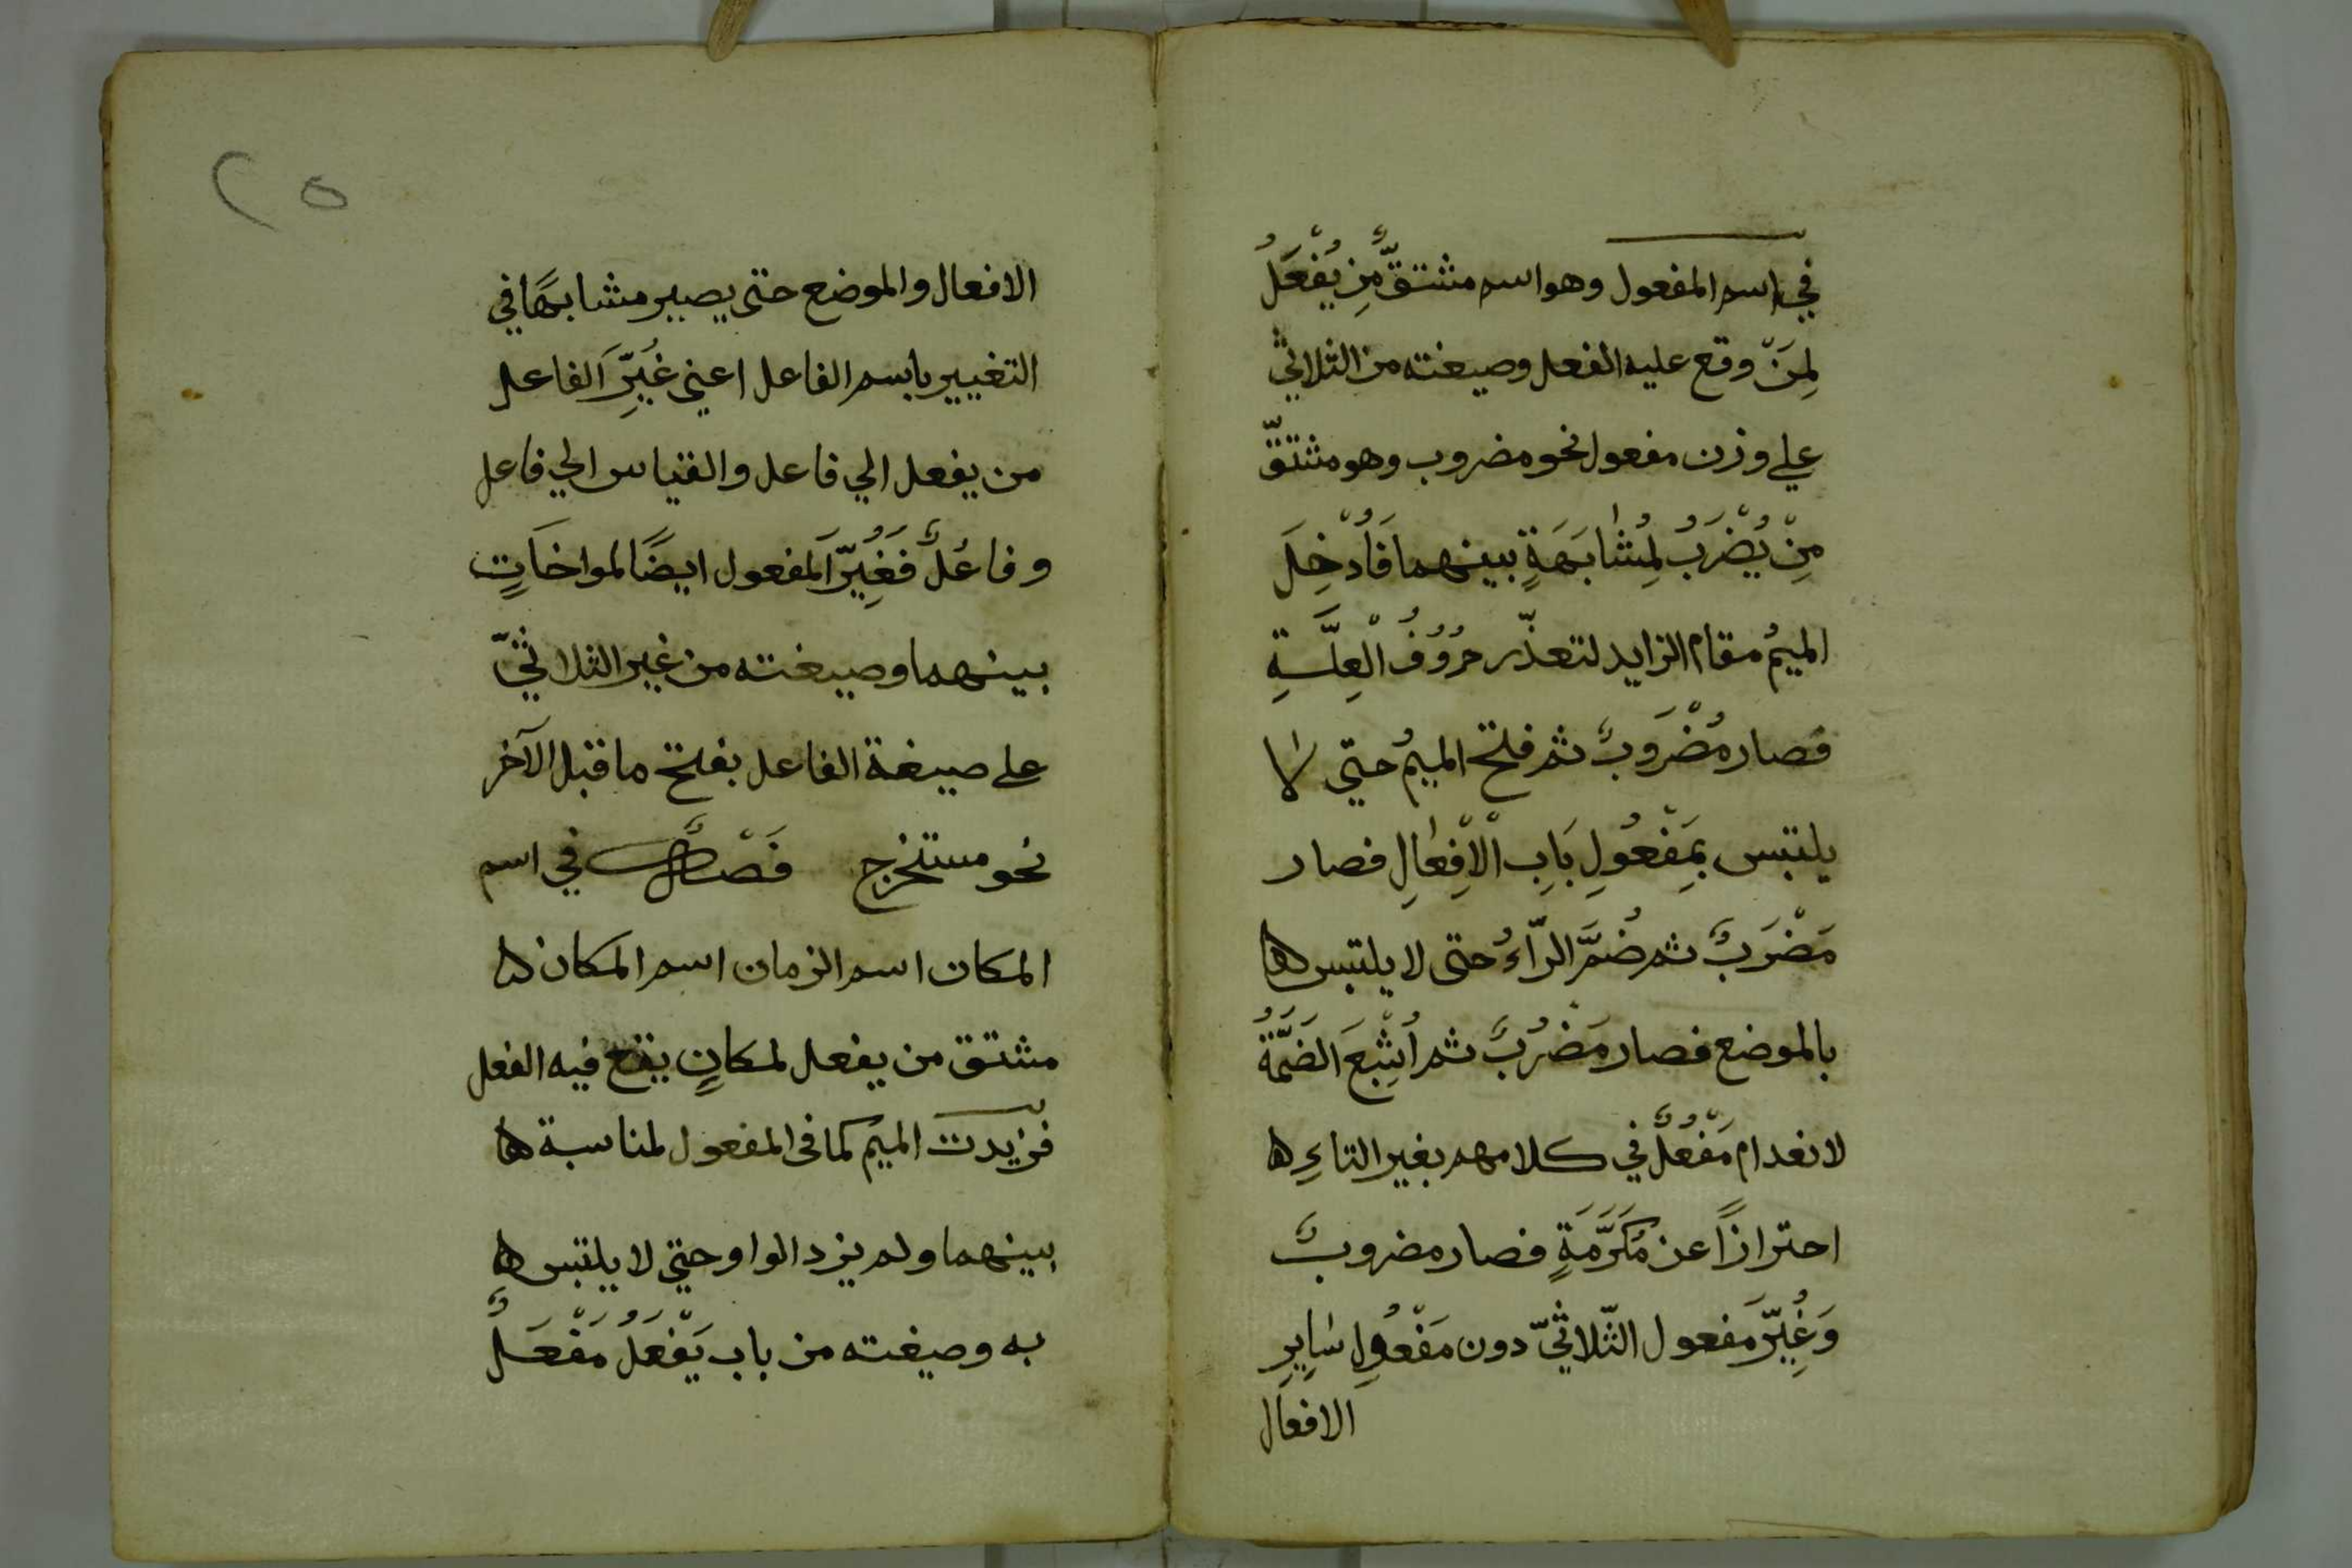 في اسم المفعول وهو اسم مشتقٌّ مِن يُفْعَلُ
لِمَنْ وقع عليه الفعل وصيغته من الثلاثيّ
علي وزن مفعول نحو مضروب وهو مشتقّ
مِنْ يُضْرَبُ لِمُشَابَهَةٍ بينهما فَاُدْخِلَ
الميمُ مقام الزايد لتعذّر حُرُوُفُ الْعِلَّةِ
فصار مُضْرَبٌ ثم فتح الميمُ حتّي لا
يلتبس بمَفْعُولِ بَابِ الْاِفْعَالِ فصار
مَضْرَبٌ ثم ضُمَّ الرّاءُ حتى لا يلتبس
بالموضع فصار مَضْرُبٌ ثم اُشْبِعَ الضَمَّةُ
لانعدام مَفْعُلٌ في كلامهم بغير التاءِ
احترازًا عن مَكْرَمَةٍ فصار مضروبٌ
وَغُيِّرَ مَفعول الثّلاثيّ دون مَفْعُولِ سَايِرِ
الافعال
٢٥
الافعال والموضع حتى يصير مشابهًا في
التغيير باسم الفاعل اعني غُيِّرَ الفاعل
من يفعل الي فاعل والقياس الي فاعل
وفاعُلٌ فَغُيِّرَ المفعول ايضًا لمواخَاتٍ
بينهما وصيغته من غير الثلاثيّ
على صيغة الفاعل بفتح ما قبل الآخر
نحو مستخرج فَصْلٌ في اسم
المكان اسم الزمان اسم المكان
مشتق من يفعل لمكانٍ يقع فيه الفعل
فزيدت الميم كما فى المفعول لمناسبة
بينهما ولم يزد الواو حتي لا يلتبس
به وصيغته من باب يَفْعَلُ مَفْعَلٌ